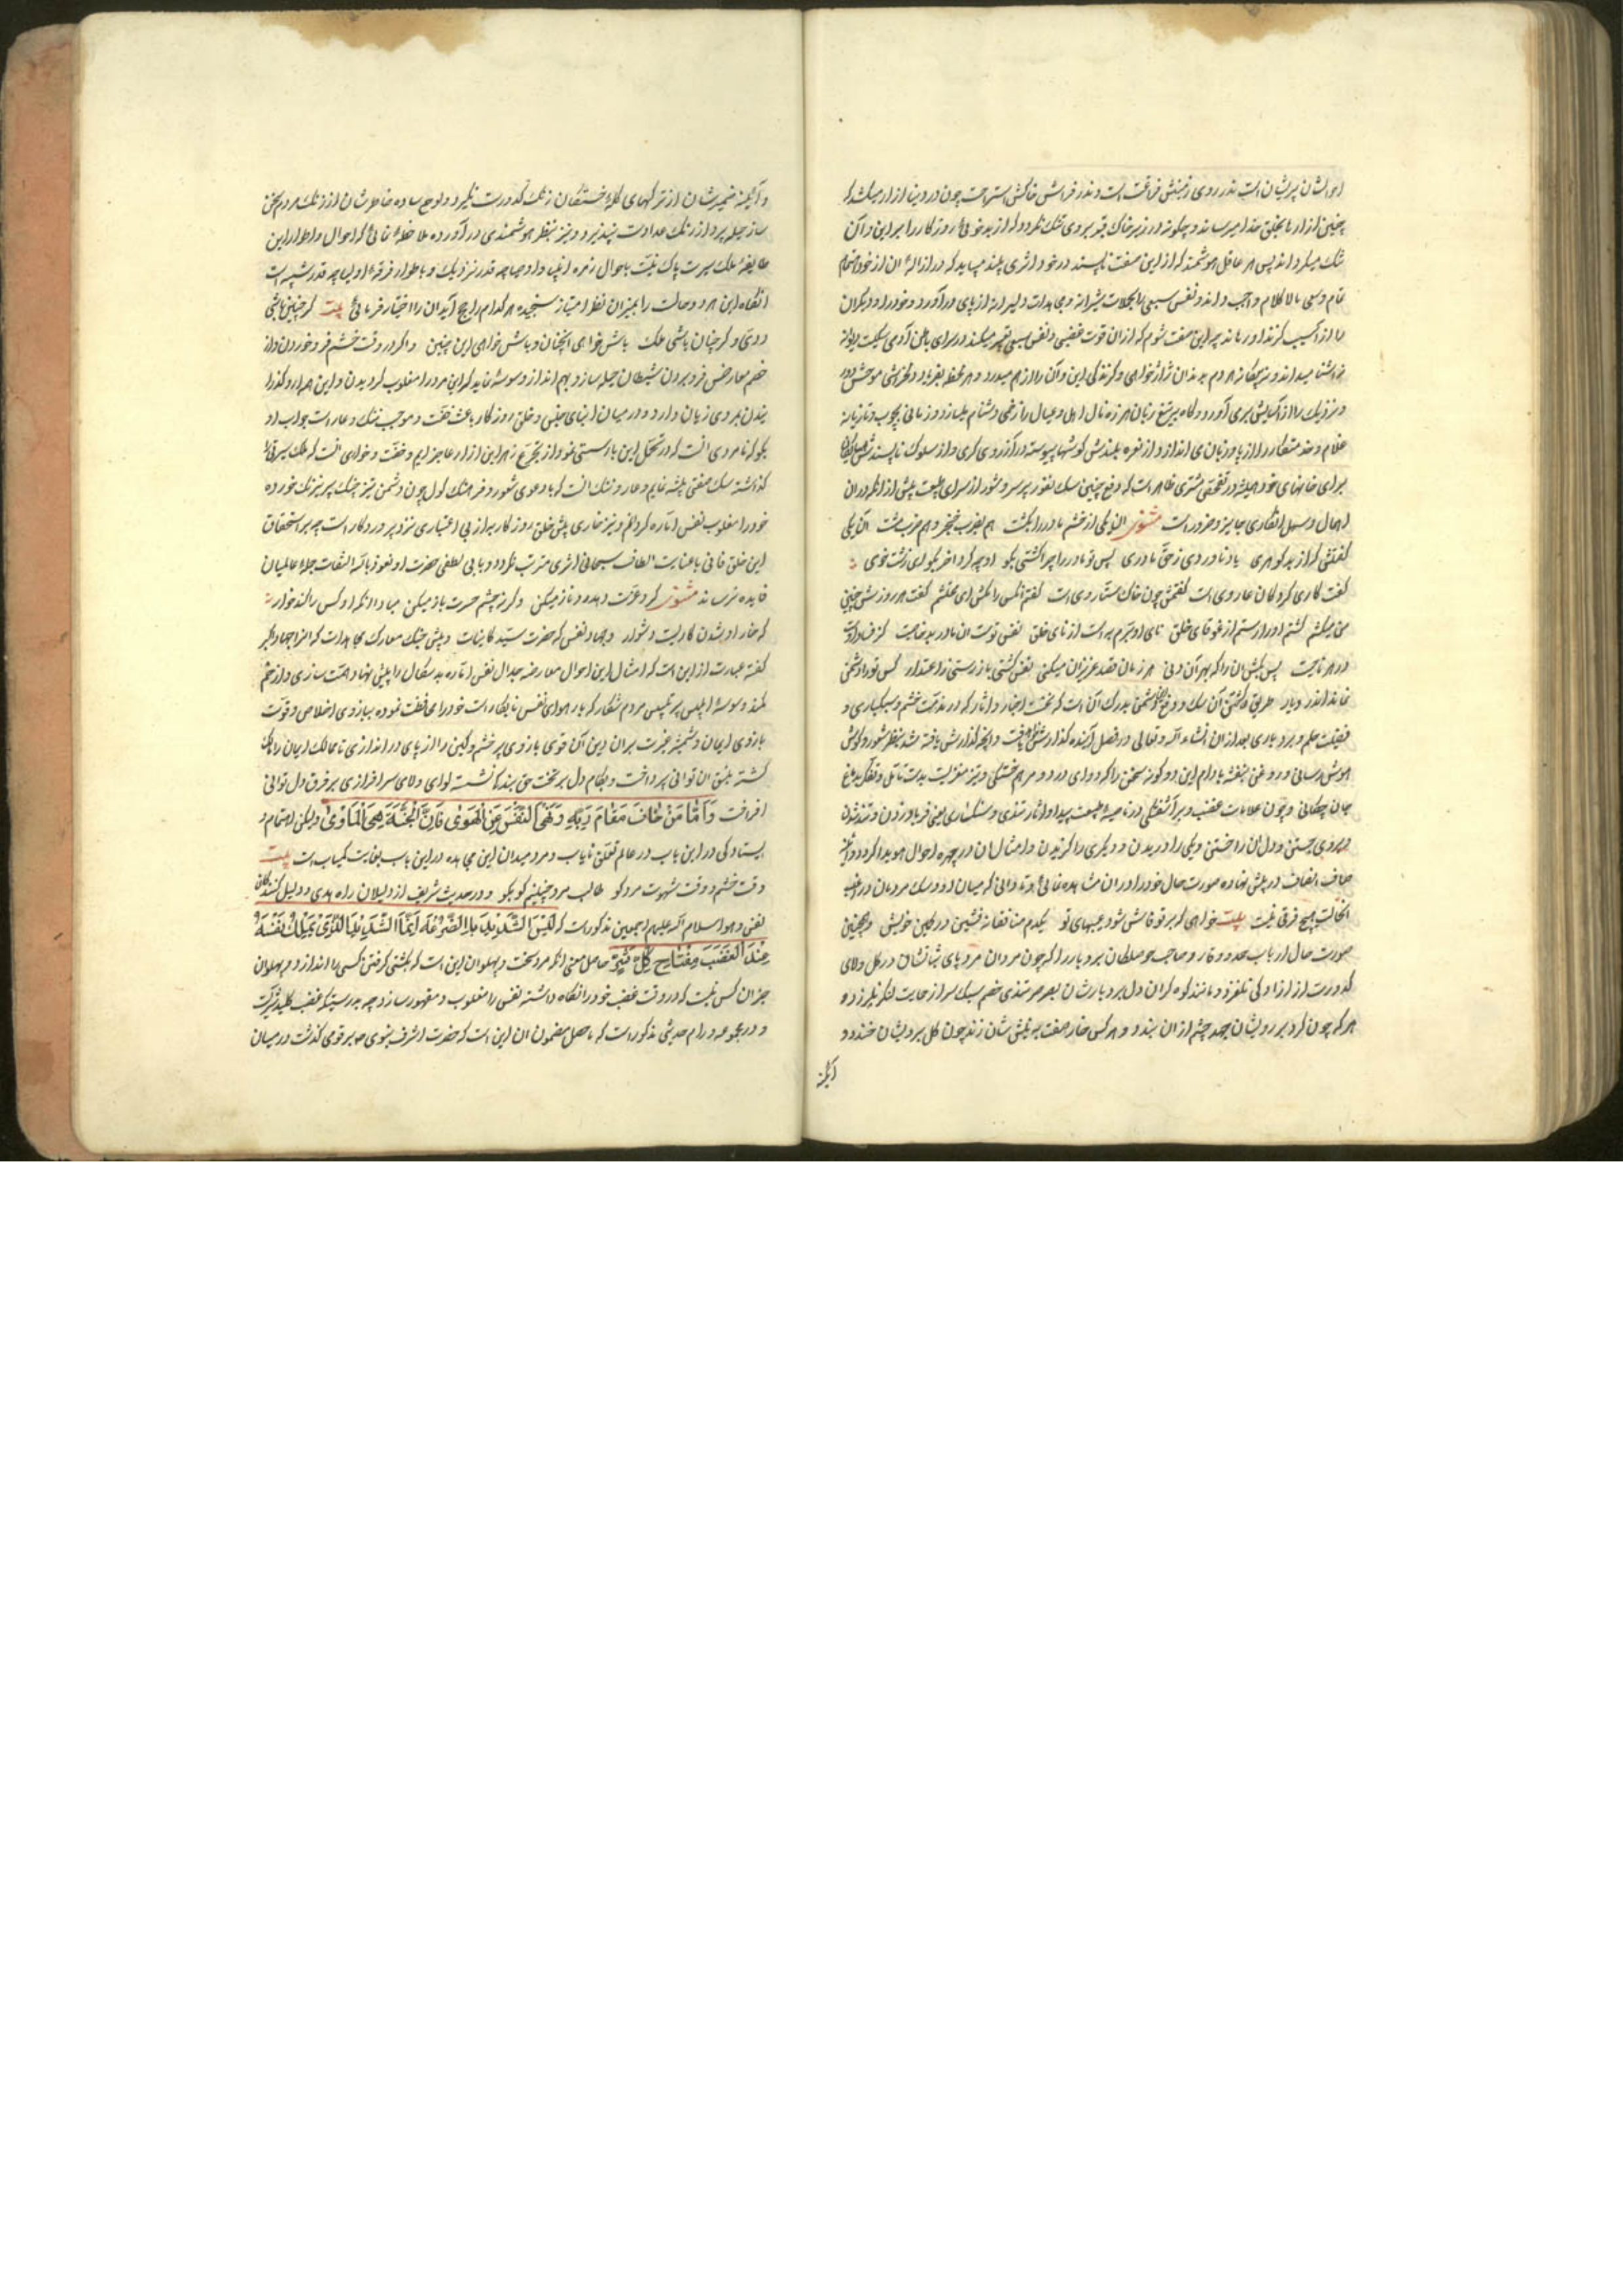 ایشان پریشان است نه در روی زمینش فراغت است و نه در فراش خاکش استراحت چون در دنیا آزار میکشد که
چنین آزارها بخلق خدا میرساند و چگونه در زیر خاک قبر بروی تنک نگردد که از بدخوئی روزگار را بر این و آن
تنک میکرداند پس هر عاقل هوشمند که از این صفت ناپسند در خود اثری بیند میباید که در ازالهٔ آن از خود اهتمام
تمام و سعی مالا کلام واجب داند و نفس سبعی را بحملات شیرانه و مجاهدات دلیرانه از پای درآورد و خود را و دیگران
را از آسیب گزند او رهاند چه این صفت شوم که از آن قوت غضبی و نفس سبعی تعبیر میکنند در سرای باطن آدمی سگیست دیوانه
نه آشنا میداند و نه بیگانه هر دم بدندان ژاژخواهی و گزندگی این و آن را از هم میدرد و هر لحظه بفریاد و خروشی موحش دور
و نزدیک را از آسایش بری آورد و گاه به تیغ زبان هرزه نال اهل و عیال را زخمی دشنام میسازد و زمانی بچوب و تازیانه
غلام و خدمتکار را از پا و زبان می اندازد از نعره بلندش گوشها پیوسته در آزردگی کری و از سلوک ناپسندش
برای خانهای خود همیشه در تفحص مشتری ظاهر است که دفع چنین سک عقور پر شر و شور از سرای طبیعت پیش از آنکه در آن
اهمال و سهل انگاری جایز و ضرور است مثنوی آن یکی از خشم مادر را بکشت هم بضرب خنجر و هم ضرب مشت آن یکی
گفتش که از بدگوهری یاد ناوردی ز حق مادری پس تو مادر را چرا کشتی بگو او چه کرد آخر بگو ای زشت خوی
گفت کاری کرد کان عار وی است کشتمش چون خاک ستار وی است گفت آنکس را بکش ای محتشم گفت هر روزش چنین
من میکشم کشتم او را رستم از غوغای خلق نای او برم به است از نای خلق نفس تست آن مادر بدخاصیت کز فساد اوست
در هر ناحیت پس بکش آن را که بهر آن دنی هر زمان قصد عزیزان میکنی نفس کشتی باز رستی ز اعتذار کس تو را دشمن
نماند اندر دیار طریق کشتن آن سک و دفع دشمن بدرک آن است که نخست اخبار و آثار که در مذمت خشم و سبکباری و
فضیلت حلم و بردباری بعد از آن انشاء الله تعالی در فصل آینده گذارش خواهد یافت و آنچه گذارش یافته شد بنظر شعور و گوش
هوش رسانی و روغن بنفشه بادام این دو گونه سخن را گرد وای درد و مرهم خستگی و تیز مغزیت بدست تأمل و تفکر بدماغ
جان چکانی و چون علامات غضب و برآشفتگی در ناصیه طبیعت پیدا و آثار تندی و سبکساری یعنی فریاد زدن و تند شدن
در روی جستن و دندان ساختن و یکی را دریدن و دیگری را گزیدن و امثال آن در چهره احوال هویدا گردد آینه
صاف انصاف در پیش نهاده صورت حال خود را در آن مشاهده نمائی تا دانی که میان تو و سک مردمان در غضب
آنحالت هیچ فرقی نیست بیت خواهی که بر تو فاش شود عیبهای تو یکدم منافقانه نشین در کمین خویش و همچنین
صورت حال ارباب حمد و وقار و صاحب حوصلگان بردبار را که چون مردان مرد پای ثباتشان در کل ولای
کدورت از آزادگی نلغزد و مانند کوه گران دل بردبارشان بصرصر تندی خصم سبک سر از جا بت لنگر نلرزد و
هر که چون گرد بر رویشان جهد چشم از آن بندند و هر کس خار صفت به نیش‌شان زند چون گل برویشان خندند و
آینه
و آینه ضمیرشان از ترکهای خستگان زنک کدورت نگیرد و لوح ساده خاطرشان از زنک مردم سخن
ساز حیله پرداز رنک عداوت نپذیرد و نیز بنظر هوشمندی درآورده ملاحظه نمائی که احوال و اطوار این
طایفه ملک سیرت پاک نیت باحوال زمره انبیا و اوصیا چه قدر نزدیک و با طوار فرقه اولیا چه قدر شبیه است
آنگاه این هر دو حالت را بمیزان نظر امتیاز سنجیده هر کدام راجح آید آن را اختیار فرمائی بیت گر چنین باشی
ددی و گر چنان باشی ملک باش خواهی آنچنان و باش خواهی این چنین و اگر در وقت خشم فرو خوردن و از
خصم معارض فرو بردن شیطان حیله ساز وهم انداز وسوسه نماید که این مرد را مغلوب گردیدن و این هرار و گذرا
بمردی زیان دارد و در میان ابنای جنس و خلق روزگار باعث خفت و موجب ننک و عار است جواب او
بگو که نامردی آنست که در تحمل این بار سستی نمود از تجرع زهر این آزار عاجز آیم و خفت و خواری آنست که ملک سیرتی را
گذاشته سک صفتی پیشه نمایم و عار و ننک آنست که با دعوی شعور و فرهنک کول چون دشمن تیز چنک پر نیرنک خورده
خود را مغلوب نفس اماره گردانم و نیز خواری پیش خلق روزگار به از بی اعتباری نزد پروردگار است چه بر استحقاق
این خلق فانی با عنایت الطاف سبحانی اثری مترتب نگردد و با بی لطفی حضرت او نعوذ بالله التفات جمله عالمیان
فایده نرساند مثنوی گر دو عزت دهد رو ناز میکن وگرنه چشم حسرت باز میکن مبادا آنکه او کس را کند خوار
که خوار او شدن کاریست دشوار و جهاد نفس که حضرت سید کاینات و پیش جنک معارک مجاهدات که آنرا جهاد اکبر
گفته عبارت از این است که امثال این احوال معارضه جدال نفس اماره بد سگال را پیش نهاد همت سازی و از خم
کمند وسوسه ابلیس پر تلبیس مردم شکار که یار هوای نفس نابکار است خود را محافظت نموده ببازوی اخلاص و قوت
بازوی ایمان و شمشیر غیرت بران دین آن قوی بازوی پر خشم و کین را از پای دراندازی تا ممالک ایمان را مالک
گشته بتیغ آن توانی پرداخت و بکام دل بر تخت حق بندگی نشسته لوای ولای سرافرازی بر فرق دل توانی
افراخت وَأَمَّا مَنْ خَافَ مَقَامَ رَبِّهِ وَنَهَى النَّفْسَ عَنِ الْهَوَى فَإِنَّ الْجَنَّةَ هِيَ الْمَأْوَى ولیکن اهتمام و
ایستادگی در این باب در عالم تعلق نایاب و مرد میدان این مجاهده در این باب بغایت کمیاب است بیت
وقت خشم و وقت شهوت مرد کو طالب مرد چنینم کو بکو و در حدیث شریف از دلیلان راه هدی و دلیل کنندگان
نفس و هوا سلام الله علیهم اجمعین مذکور است که لَيْسَ الشَّدِيدُ بِالصُّرْعَةِ إِنَّمَا الشَّدِيدُ الَّذِي يَمْلِكُ نَفْسَهُ
عِنْدَ الْغَضَبِ مِفْتَاحِ كُلِّ شَرٍّ حاصل معنی آنکه مرد سخت و پهلوان این است که بکشتی گرفتن کسی را اندازد و پهلوان
جز آن کس نیست که در وقت غضب خود را نگاه داشته نفس را مغلوب و مقهور سازد چه بدرستیکه غضب کلید شر است
و در مجموعه ورام حدیثی مذکور است که ماحصل مضمون آن این است که حضرت اشرف نبوی ص بر قومی گذشت در میان